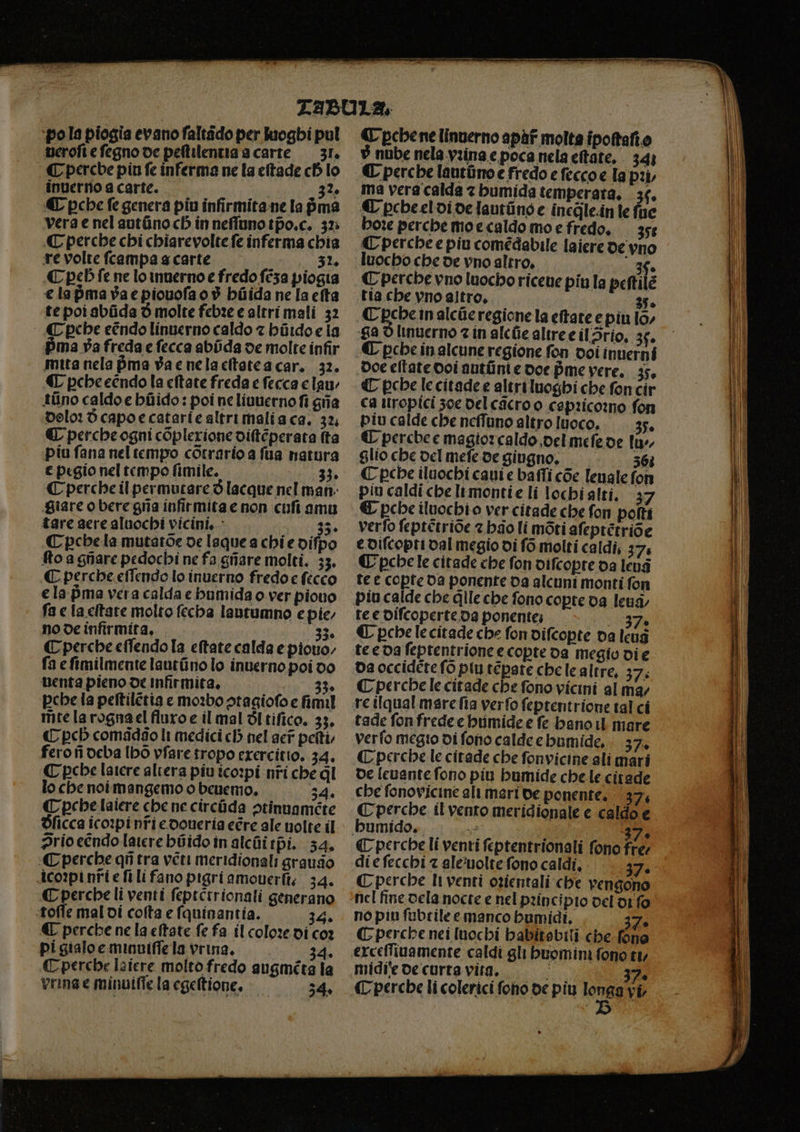 TABULA.
po la piogia evano saltãdo per luoghi pul
verosi e segno de pestilentia a carte 31.
¶ perche piu se inferma ne la estade cħ lo
inuerno a carte. 32.
¶ ꝑche se genera piu infirmita ne la p̃ma
vera e nel autũno cħ in nessuno tp̃o.c. 32.
¶ perche chi chiarevolte se inferma chia
re volte scampa a carte 32.
¶ ꝑcħ se ne lo inuerno e fredo sẽza piogia
e la p̃ma ṽa e piouosa o ṽ hũida ne la esta
te poi abũda d̃ molte febre e altri mali 32
¶ ꝑche eẽndo linuerno caldo ⁊ hũido e la
p̃ma ṽa freda e secca abũda de molte infir
mita nela p̃ma ṽa e ne la estate a car. 32.
¶ ꝑche eẽndo la estate freda e secca e lau⸗
tũno caldo e hũido: poi ne linuerno si gña
dolor d̃ capo e catari e altri mali a ca. 32.
¶ perche ogni cõplexione distẽperata sta
piu sana nel tempo cõtrario a sua natura
e pegio nel tempo simile. 33.
¶ perche il permutare d̃ lacque nel man⸗
giare o bere gña infirmita e non cusi amu
tare aere aluochi vicini. 33.
¶ ꝑche la mutatõe de laque a chi e dispo
sto a gñare pedochi ne fa gñare molti. 33.
¶ perche essendo lo inuerno fredo e secco
e la p̃ma vera calda e humida o ver piouo
sa e la estate molto secha lautumno e pie⸗
no de infirmita. 33.
¶ perche essendo la estate calda e piouo⸗
sa e similmente lautũno lo inuerno poi do
uenta pieno de infirmita. 33.
ꝑche la pestilẽtia e morbo ↄtagioso e simil
m̃te la rogna el fluxo e il mal d̃l tisico. 33.
¶ ꝑcħ comãdão li medici cħ nel aer̃ pesti⸗
fero ñ deba lhõ vsare tropo exercitio. 34.
¶ ꝑche laiere altera piu icorpi nr̃i che q̃l
lo che noi mangemo o beuemo. 34.
¶ ꝑche laiere che ne circũda ↄtinuamẽte
d̃sicca icorpi nr̃i e doueria eẽre ale uolte il
ↄrio eẽndo laiere hũido in alcũi tp̃i. 34.
¶ perche qñ tra vẽti meridionali grauão
icorpi nr̃i e ñ li fano pigri amouersi. 34.
¶ perche li venti septẽtrionali generano
tosse mal di costa e squinantia. 34.
¶ perche ne la estate se fa il colore di cor
pi gialo e minuisse la vrina. 34.
¶ perche laiere molto fredo augmẽta la
vrina e minuisse la egestione. 34.
¶ ꝑche ne linuerno apãr̃ molta ipostasi o
ṽ nube nela vrina e poca nela estate. 34.
¶ perche lautũno e fredo e secco e la pri⸗
ma vera calda ⁊ humida temperata. 35.
¶ ꝑche el di de lautũno e ineq̃le.in le sue
hore perche mo e caldo mo e fredo. 35.
¶ perche e piu comẽdabile laiere de vno
luocho che de vno altro. 35.
¶ perche vno luocho riceue piu la pestilẽ
tia che vno altro. 35.
¶ ꝑche in alcũe regione la estate e piu lõ⸗
ga d̃ linuerno ⁊ in alcũe altre e il ↄrio. 35.
¶ ꝑche in alcune regione son doi inuerni
doe estate doi autũni e doe p̃me vere. 35.
¶ ꝑche le citade e altri luoghi che son cir
ca itropici zoe del cãcro o capricorno son
piu calde che nessuno altro luoco. 35.
¶ perche e magior caldo.del mese de lu⸗
glio che del mese de giugno. 36.
¶ ꝑche iluochi caui e bassi cõe leuale son
piu caldi che li monti e li lochi alti. 37
¶ ꝑche iluochi o ver citade che son posti
verso septẽtriõe ⁊ hão li mõti aseptẽtriõe
e discopti dal megio di sõ molti caldi. 37.
¶ ꝑche le citade che son discopte da leuã
te e copte da ponente da alcuni monti son
piu calde che q̃lle che sono copte da leuã⸗
te e discoperte da ponente. 37.
¶ ꝑche le citade che son discopte da leuã
te e da septentrione e copte da megio di e
da occidẽte sõ piu tẽpate che le altre. 37.
¶ perche le citade che sono vicini al ma⸗
re ilqual mare sia verso septentrione tal ci
tade son frede e humide e se hano il mare
verso megio di sono calde e humide. 37.
¶ perche le citade che sonvicine ali mari
de leuante sono piu humide che le citade
che sonovicine ali mari de ponente. 37.
¶ perche il vento meridionale e caldo e
humido. 37.
¶ perche li venti septentrionali sono fre⸗
di e secchi ⁊ ale'uolte sono caldi. 37.
¶ perche li venti orientali che vengono
nel fine dela nocte e nel principio del di so
no piu subtile e manco humidi. 37.
¶ perche nei luochi habitabili che sono
excessiuamente caldi gli huomini sono ti⸗
midi'e de curta vita. 37.
¶ perche li colerici sono de piu longa vi⸗
B